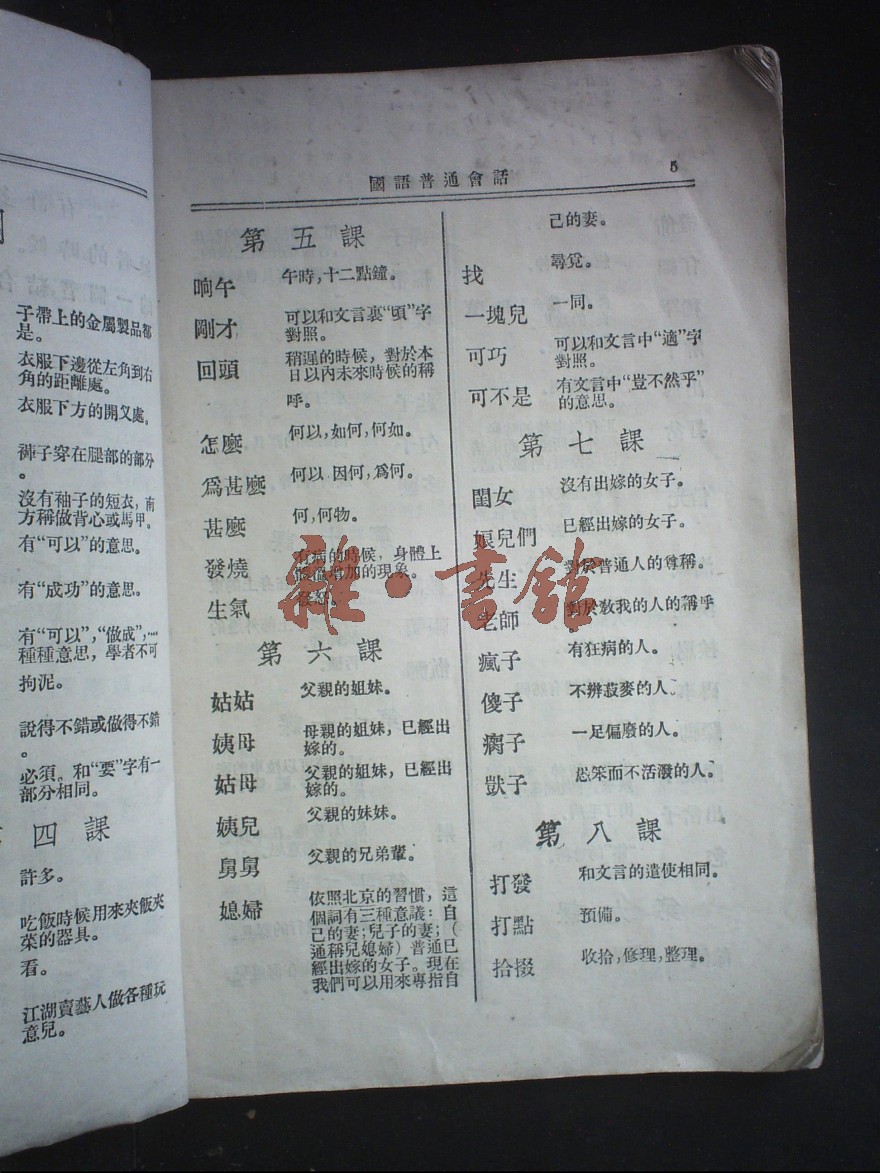 子帶上的金屬製品都
是。
衣服下邊從左角到右
角的距離處。
衣服下方的開叉處。
褲子穿在腿部的部分
。
沒有袖子的短衣，南
方稱做背心或馬甲。
有“可以”的意思。
有“成功”的意思。
有“可以”，“做成”，…
種種意思，學者不可
拘泥。
說得不錯或做得不錯
。
必須。和“要”字有一
部分相同。
四 課
許多。
吃飯時候用來夾飯夾
菜的器具。
看。
江湖賣藝人做各種玩
意兒。
國語普通會話
5
第五課
晌午 午時，十二點鐘。
剛才 可以和文言裏“頃”字
對照。
回頭 稍遲的時候，對於本
日以內未來時候的稱
呼。
怎麼 何以，如何，何如。
爲甚麼 何以 因何，爲何。
甚麼 何，何物。
發燒 有病的時候，身體上
增加的現象。
生氣 發怒。
第六課
姑姑 父親的姐妹。
姨母 母親的姐妹，已經出
嫁的。
姑母 父親的姐妹，已經出
嫁的。
姨兒 父親的妹妹。
舅舅 父親的兄弟輩。
媳婦 依照北京的習慣，這
個詞有三種意議：自
己的妻；兒子的妻；（
通稱兒媳婦）普通已
經出嫁的女子。現在
我們可以用來專指自
己的妻。
找 尋覓。
一塊兒 一同。
可巧 可以和文言中“適”字
對照。
可不是 有文言中“豈不然乎”
的意思。
第七課
閨女 沒有出嫁的女子。
娘兒們 已經出嫁的女子。
先生 對於普通人的尊稱。
老師 對於教我的人的稱呼
瘋子 有狂病的人。
傻子 不辨菽麥的人。
瘸子 一足偏廢的人。
獃子 愚笨而不活潑的人。
第八課
打發 和文言的遣使相同。
打點 預備。
拾掇 收拾，修理，整理。
雜·書館